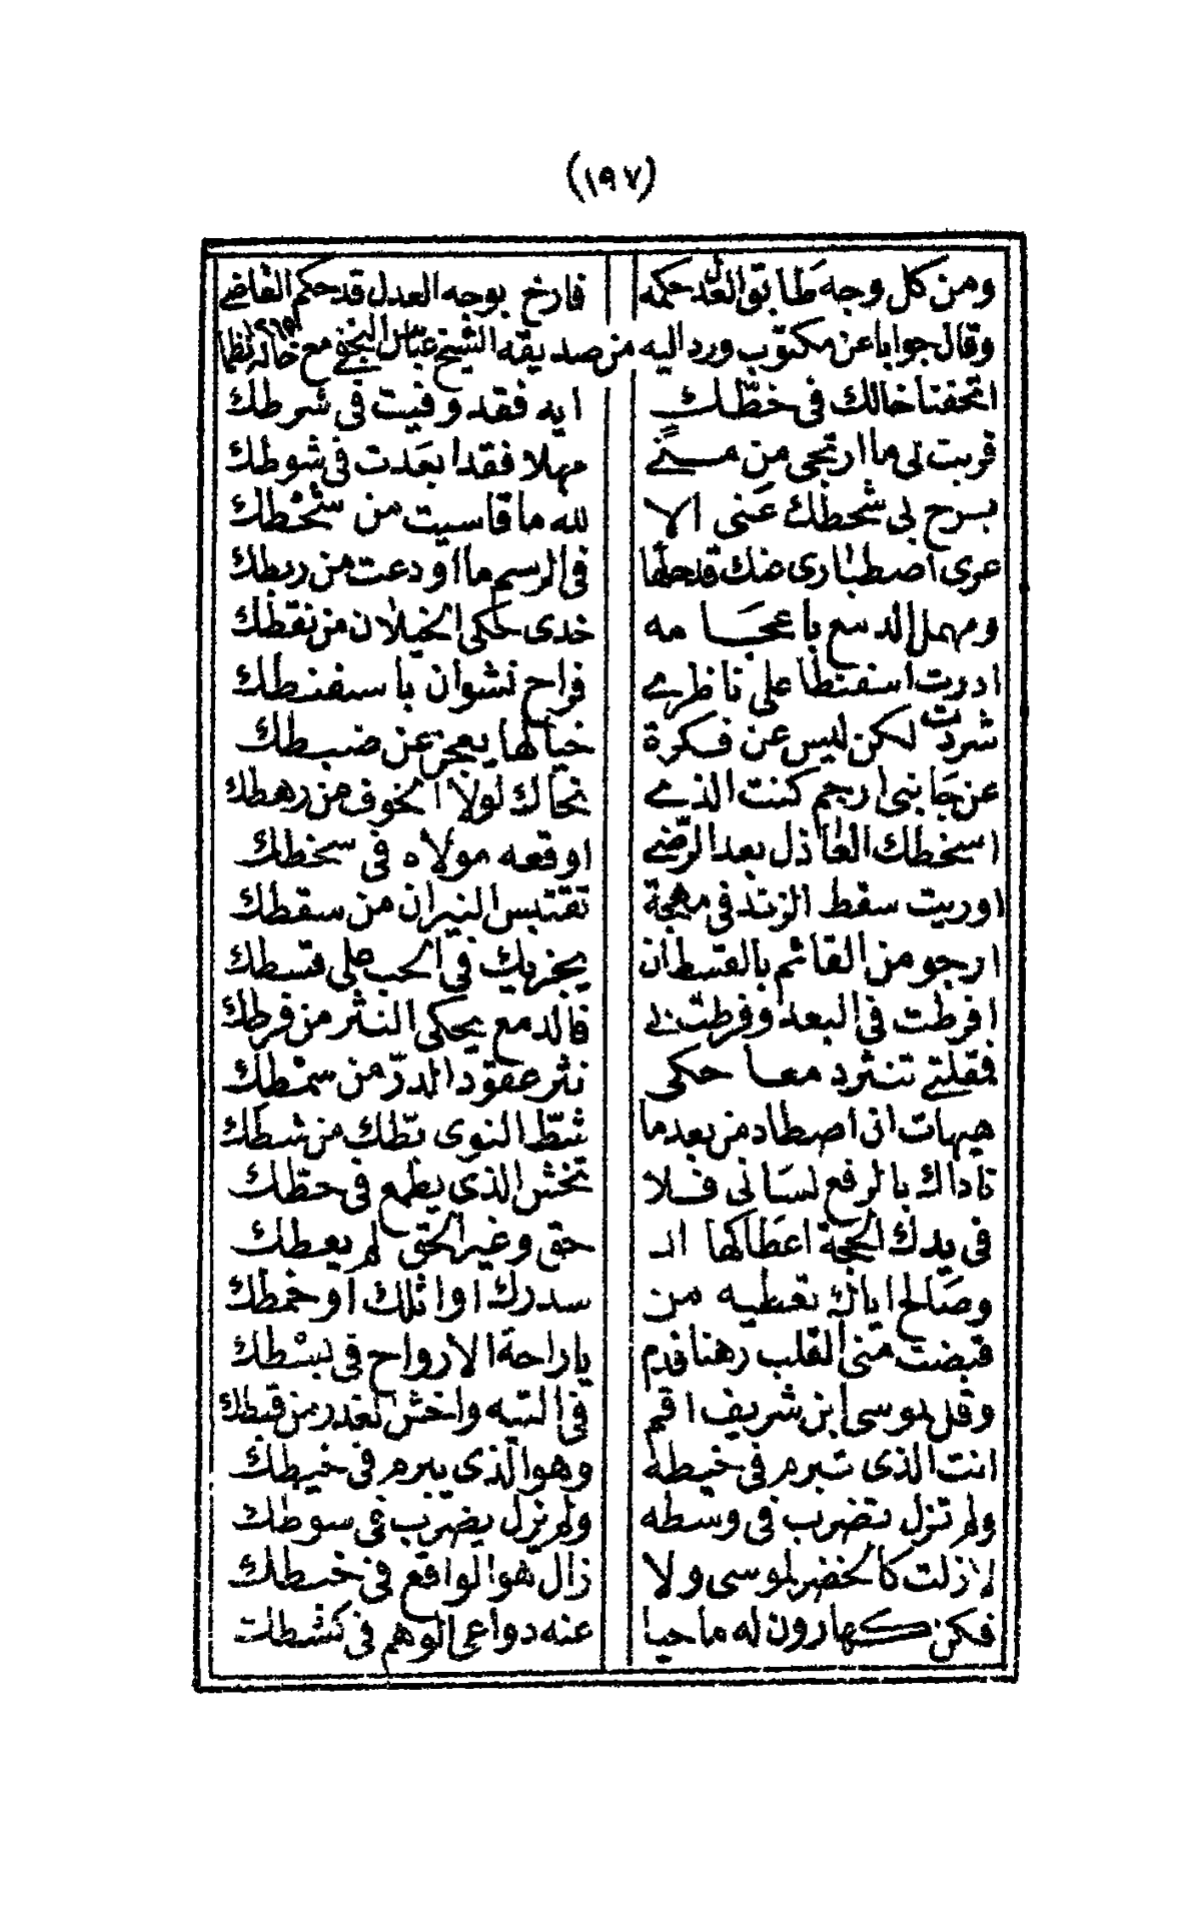 (١٩٧)
ومن كل وجه طابق العدل حكمه فارخ بوجه العدل قد حكم القاضي
وقال جوابا عن مكتوب ورد اليه من صديقه الشيخ عباس النجفي مع خاله نظما
اتحفنا خالك في خطّك ايه فقد وفيت في شرطك
قربت لي ما ارتجى من منىً مهلا فقد ابعدت في شوطك
برح لي شحطك عنى الا لله ما قاسيت من شحطك
عرى اصطبارى منك قد حلها في الرسم ما اودعت من ربطك
ومهمل الدمع باعجامه خدى حكى الخيلان من نقطك
ادرت اسفنطا على ناظري فراح نشوان باسفنطك
شردت لكن ليس عن فكرة خيالها يعجز عن ضبطك
عن جانبى ارجم كنت الذي نحاك لولا الخوف من رهطك
اسخطك العاذل بعد الرضي اوقعه مولاه في سخطك
اوريت سقط الزند في مهجة تقتبس النيران من سقطك
ارجو من القائم بالقسط ان يجزيك في الحب على قسطك
افرطت في البعد وفرطت بي فالدمع يحكى النثر من فرطك
فقلتي تنثر دمعا حكى نثر عقود الدرّ من سمطك
هيهات ان اصطاد من بعد ما شطّ النوى بطّك من شطك
ناداك بالرفع لسانى فلا تخش الذي يطمع في حطّك
في يدك الحجة اعطاكها الـ حق وغير الحق لم يعطك
وصالح اياك تعطيه من سدرك او اثلك او خمطك
قبضت منى القلب رهنا فدم يا راحة الارواح في بسطك
وقل لموسى ابن شريف اقم في التيه واخش الغدر من قبطك
انت الذى تبرم في خيطه وهو الذي يبرم في خيطك
ولم تزل تضرب في وسطه ولم يزل يضرب في سوطك
لا زلت كالخضر لموسى ولا زال هو الواقع في خبطك
فكن كهارون له ما حيا عنه دواعى الوهم في كشطك